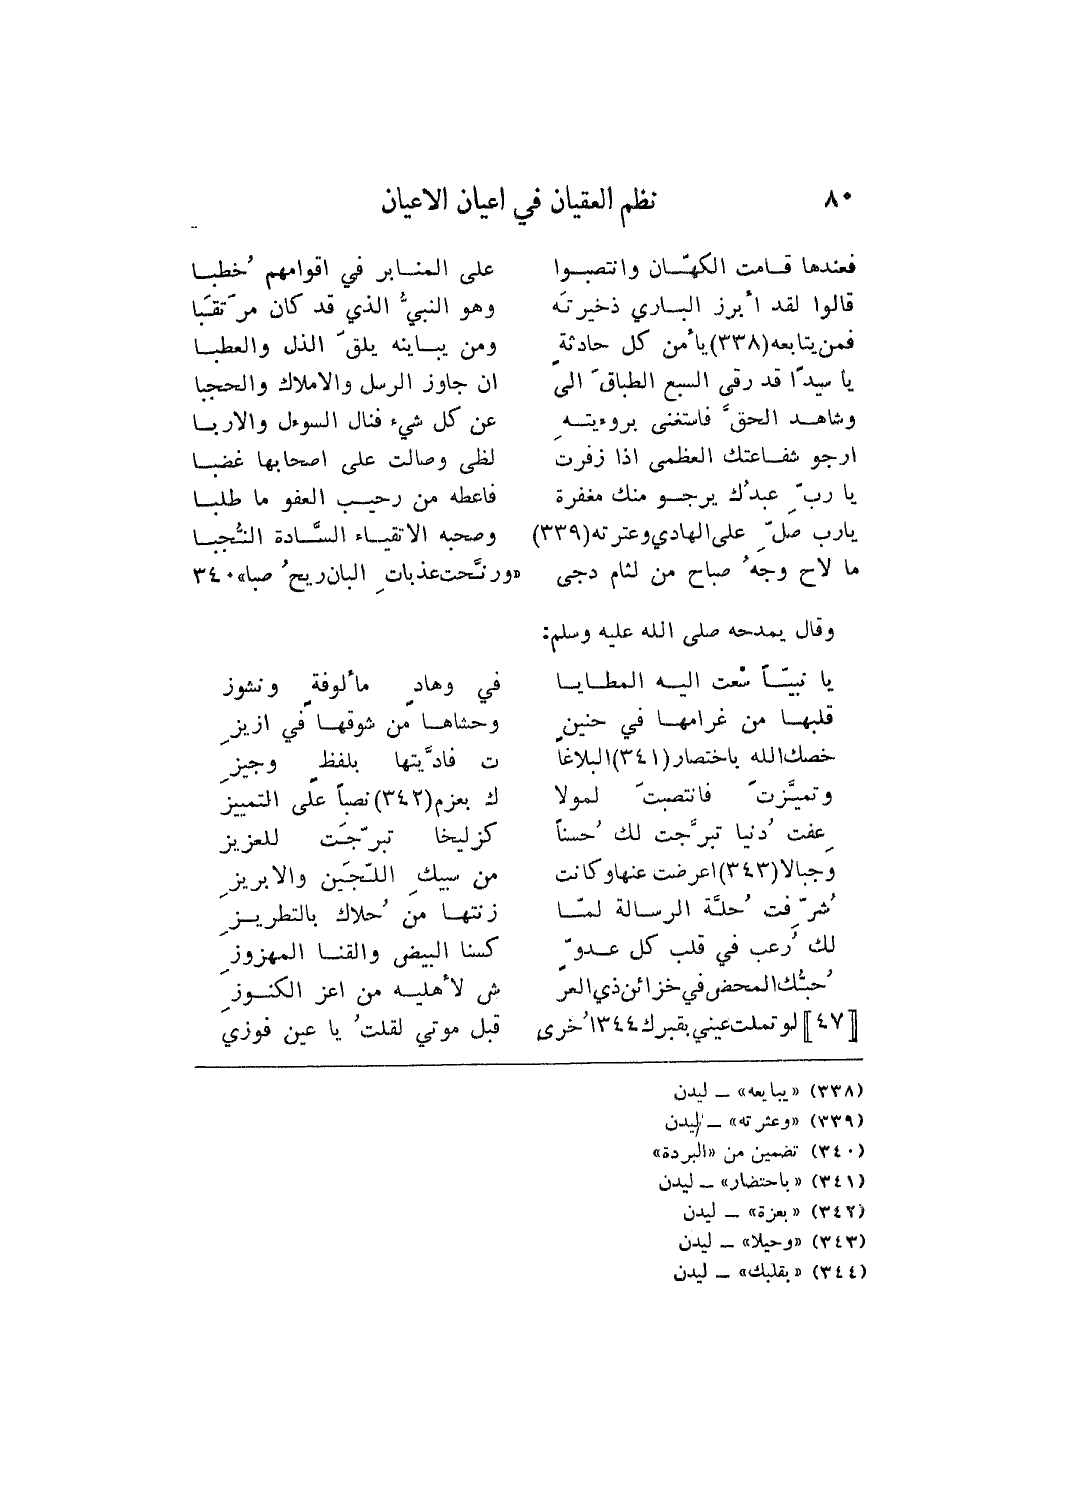 ٨٠ نظم العقيان في اعيان الاعيان
فعندها قامت الكهّان وانتصبوا على المنابر في اقوامهم خُطبا
قالوا لقد أبرز الباري ذخيرتَه وهو النبيُّ الذي قد كان مرَتقَبا
فمن يتابعه(٣٣٨)يأمن كل حادثةٍ ومن يباينه يلقَ الذل والعطبا
يا سيدًا قد رقى السبع الطباقَ الى ان جاوز الرسل والاملاك والحجبا
وشاهد الحقَّ فاستغنى بروءيتهِ عن كل شيء فنال السوءل والاربا
ارجو شفاعتك العظمى اذا زفرت لظى وصالت على اصحابها غضبا
يا ربِّ عبدُك يرجو منك مغفرة فاعطه من رحيب العفو ما طلبا
يارب صلِّ على الهادي وعترته(٣٣٩) وصحبه الاتقياء السَّادة النُّجبا
ما لاح وجهُ صباح من لثام دجى «ورنَّحت عذباتِ البان ريحُ صبا»٣٤٠
وقال يمدحه صلى الله عليه وسلم:
يا نبيّاً سْعت اليه المطايا في وهادٍ مألوفةٍ ونشوز
قلبها من غرامها في حنينٍ وحشاها من شوقها في ازيزِ
خصك الله باختصار(٣٤١)البلاغا ت فادَّيتها بلفظٍ وجيزِ
وتميَّزتَ فانتصبتَ لمولا ك بعزم(٣٤٢)نصباً على التمييز
عِفت دُنيا تبرَّجت لك حُسناً كزليخا تبرّجَت للعزيز
وجبالا(٣٤٣)اعرضت عنها وكانت من سبيكِ اللّجَين والابريزِ
شُرِّفت حُلَّة الرسالة لمّا زنتها من حُلاك بالتطريزِ
لك رُعب في قلب كل عدوٍّ كسنا البيض والقنا المهزوزِ
حُبُّك المحض في خزائن ذي العر ش لأهليه من اعز الكنوزِ
[٤٧] لو تملت عيني بقبرك٣٤٤ اُخرى قبل موتي لقلتُ يا عين فوزي
(٣٣٨) «يبايعه» ــ ليدن
(٣٣٩) «وعثرته» ــ ليدن
(٣٤٠) تضمين من «البردة»
(٣٤١) «باحتضار» ــ ليدن
(٣٤٢) «بعزة» ــ ليدن
(٣٤٣) «وحيلا» ــ ليدن
(٣٤٤) «بقلبك» ــ ليدن